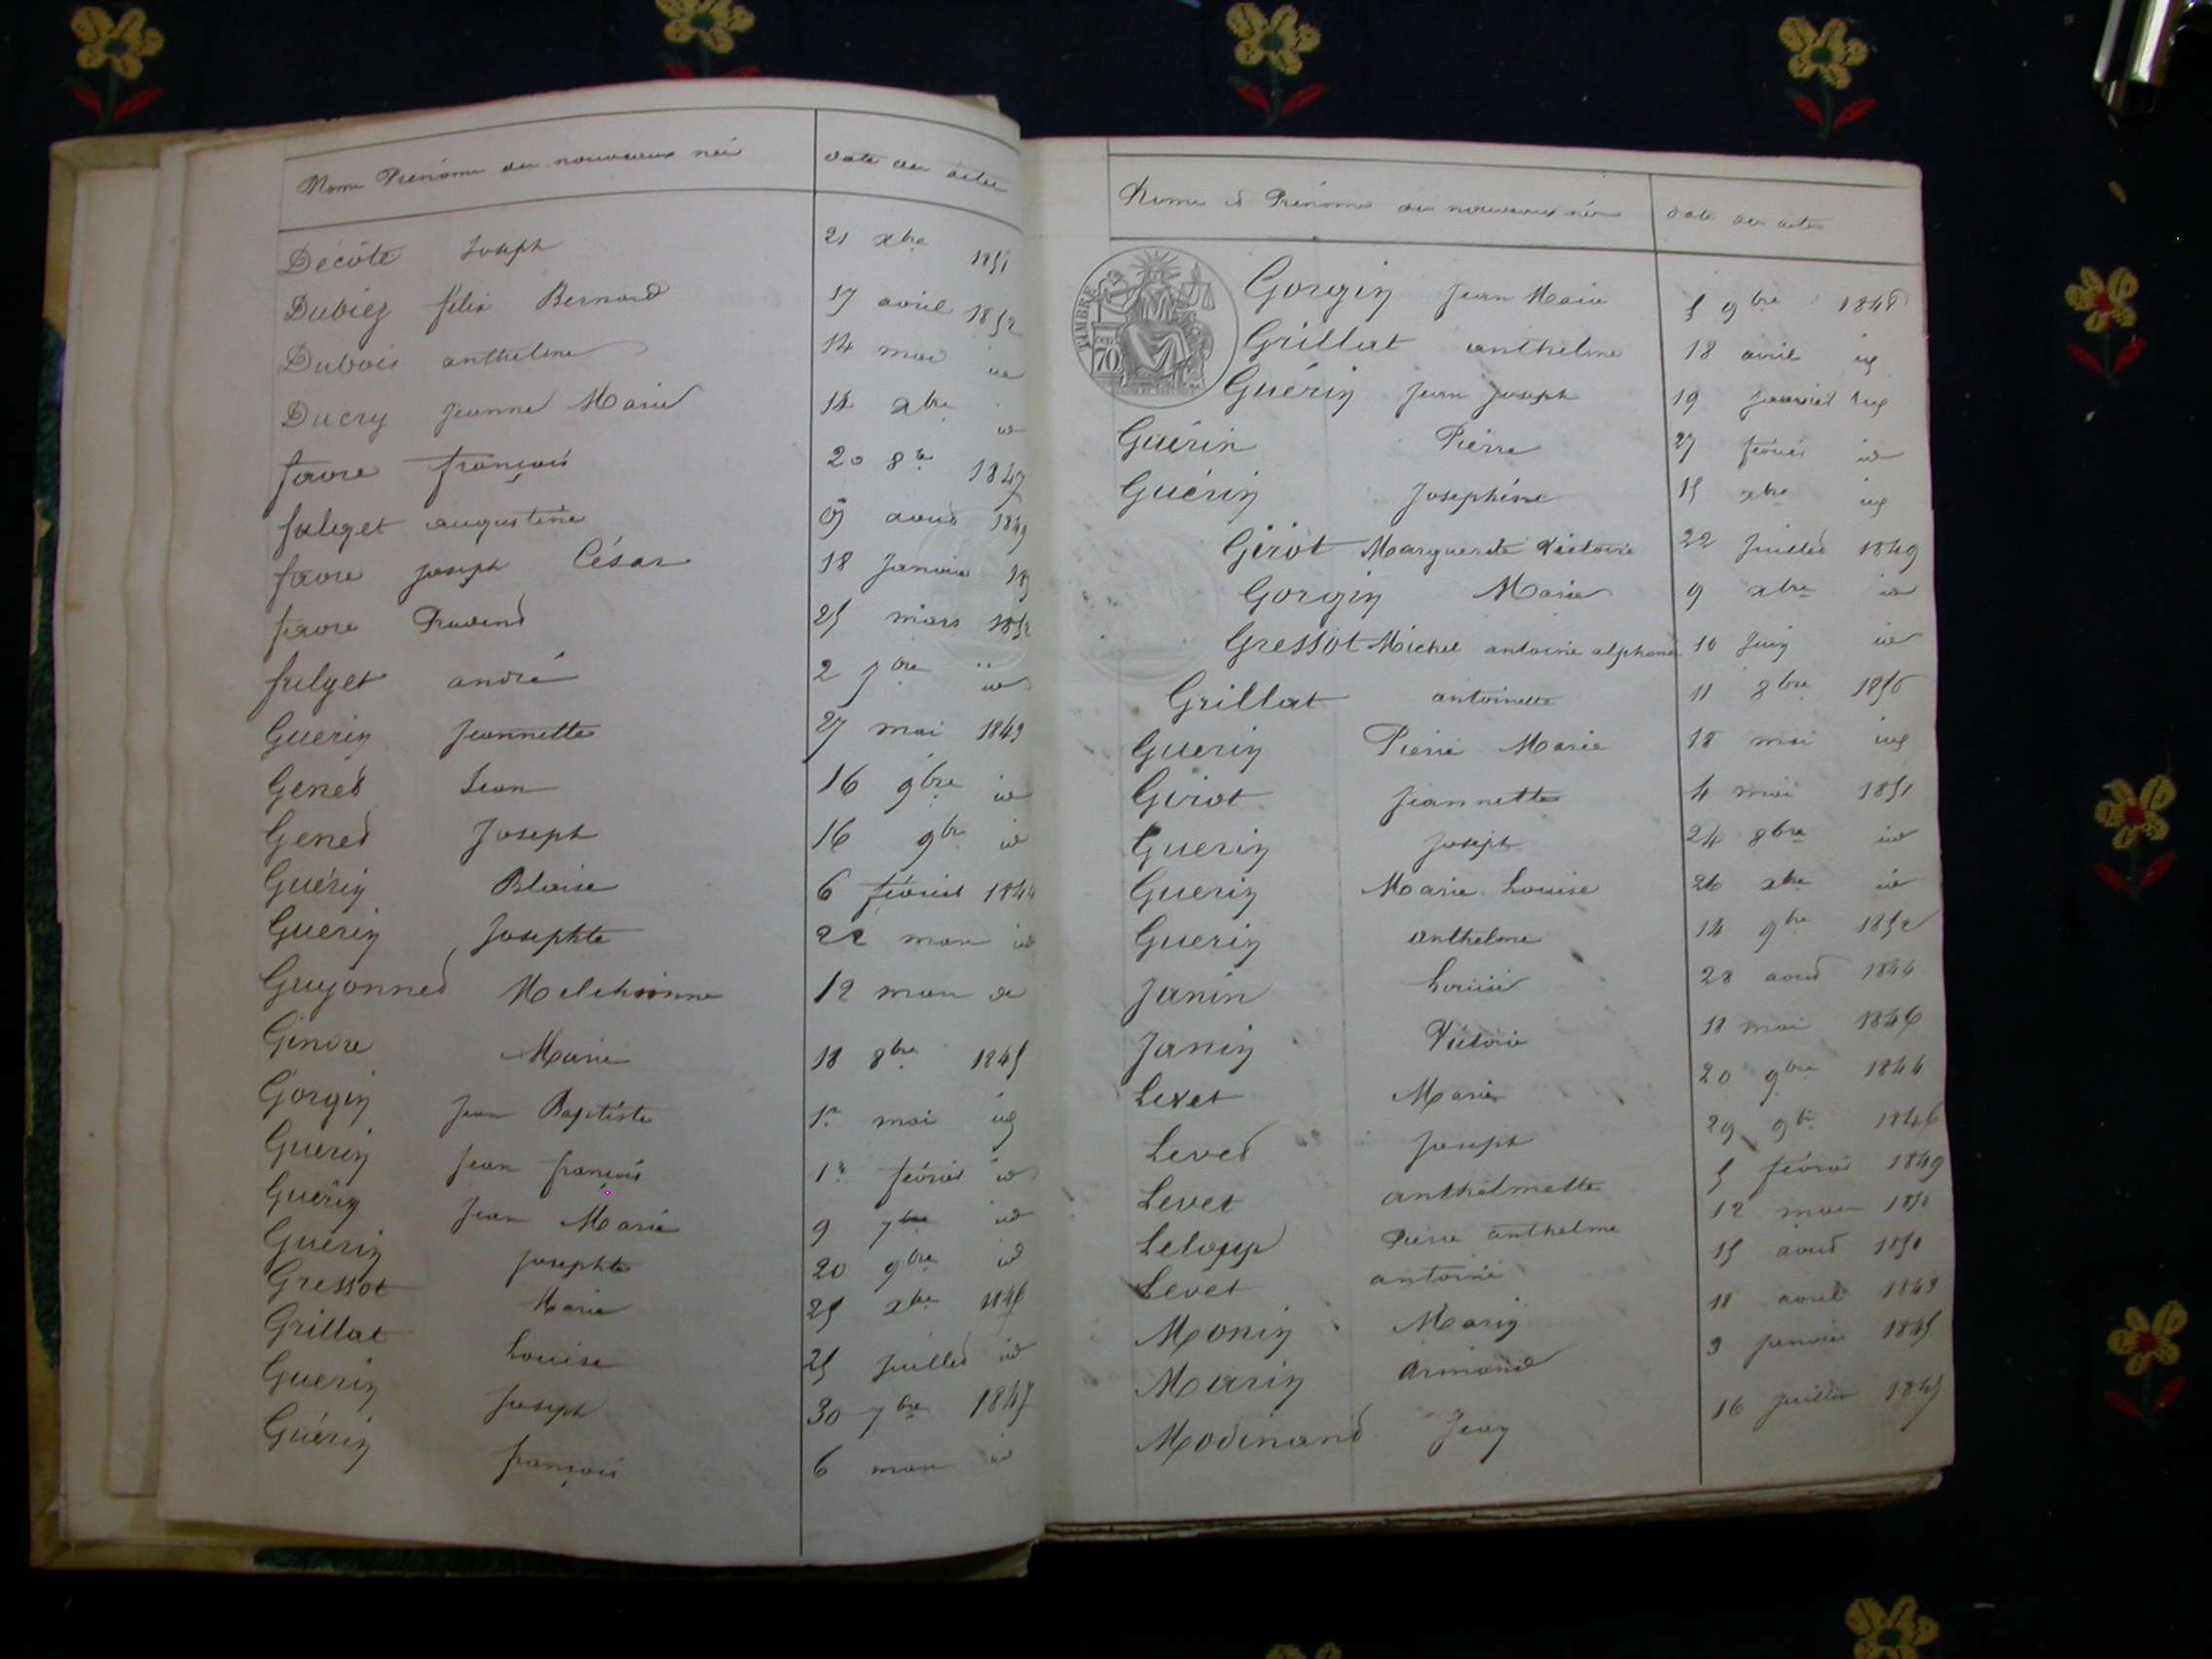 Noms Prénoms des nouveaux nés date des actes
Décôte Joseph 21 xbre 1851
Dubiez félix Bernard 17 avril 1852
Dubois anthelme 14 mai id
Ducry Jeanne Marie 14 xbre id
favre françois 20 8bre 1847
falcyet augustine 9 aout 1849
favre joseph César 18 Janvier
favre Pravend 25 mars 1852
fulyet andré 2 7bre id
Guerin Jeannette 27 mai 1843
Genet Jean 16 9bre id
Genet Joseph 16 9bre id
Guérin Blaise 6 février 1844
Guerin Josephte 22 mars id
Guyonnet Melchionne 12 mars id
Gindre Marie 18 8bre 1845
Gorgin Jean Baptiste 1er mai id
Guerin Jean françois 1er février id
Guerin Jean Marie 9 7bre id
Guerin josephte 20 9bre id
Gressot Marie 25 xbre 1846
Grillat Louise 25 juillet id
Guerin Joseph 30 7bre 1847
Guérin françois 6 mars id
Noms et Prénoms des nouveaux nés date des actes
TIMBRE
70
Gorgin Jean Marie 5 9bre 1848
Grillat anthelme 18 avril id
Guérin Jean Joseph 19 janvier id
Guérin Pierre 27 février id
Guérin Joséphine 15 xbre id
Girot Marguerite Victoire 22 Juillet 1849
Gorgin Marie 9 xbre id
Gressot Michel antoine alphonse 16 Juin id
Grillat antoinette 11 8bre 1850
Guerin Pierre Marie 18 mai id
Girot Jeannette 4 mai 1851
Guerin Joseph 24 8bre id
Guerin Marie Louise 26 xbre id
Guerin anthelme 14 9bre 1852
Janin Louise 28 aout 1844
Janin Victoire 18 mai 1846
Levet Marie 20 9bre 1844
Levet Joseph 29 9bre 1846
Levet anthelmette 5 février 1849
Leloup Pierre anthelme 12 mars 1850
Levet antoine 15 aout 1850
Monin Marie 18 avril 1843
Marin Armand 3 janvier 1845
Modinand Jean 16 Juillet 1845